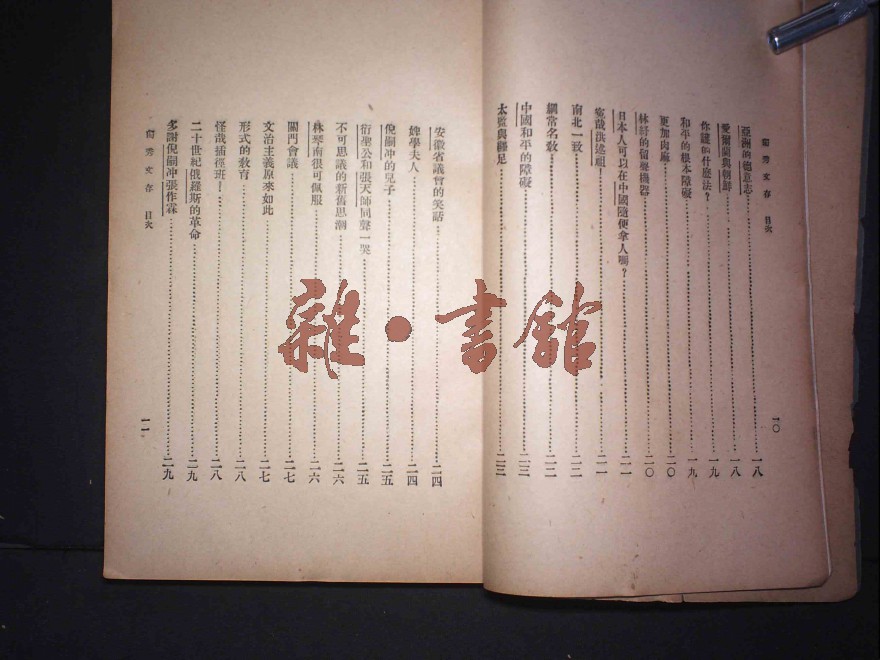 獨秀文存　目次
亞洲的德意志……一八
愛爾蘭與朝鮮……一八
作什麼法？……一九
和平的根本障礙……一九
更加肉麻……二〇
林紓的留聲機器……二〇
日本人可以在中國隨便拿人嗎？……二一
冤哉洪述祖！……二一
南北一致……二二
綱常名教……二二
中國和平的障礙……二三
太監與纏足……二三
一〇
安徽省議會的笑話……二四
婢學夫人……二四
倪嗣冲的兒子……二五
衍聖公和張天師同聲一哭……二五
不可思議的新舊思潮……二六
林琴南很可佩服……二六
關門會議……二七
文治主義原來如此……二七
形式的教育……二八
怪哉插徑班！……二八
二十世紀俄羅斯的革命……二九
多謝倪嗣冲張作霖……二九
獨秀文存　目次
一一
雜·書館